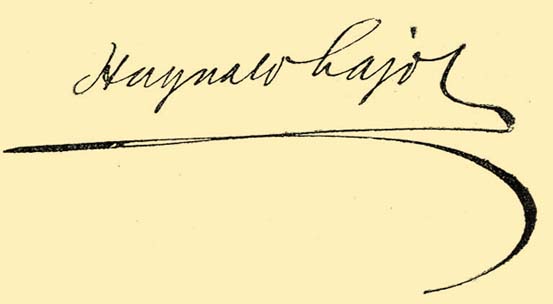 Haynald Lajos